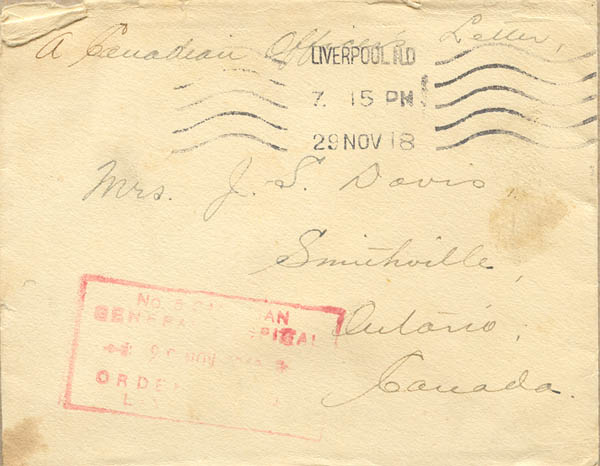 A Canadian Officer's Letter,
LIVERPOOL
7. 15 PM
29 NOV 18
Mrs. J. S. Davis
Smithville,
Ontario,
Canada.
No. 5 AN
GENERA PITAL
NOV
ORDE